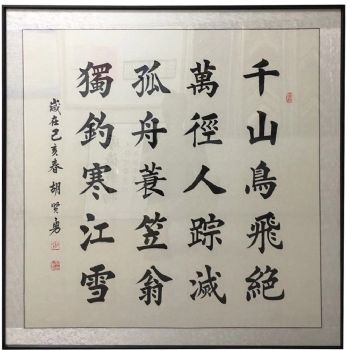 千山鳥飛絕
萬徑人踪滅
孤舟蓑笠翁
獨釣寒江雪
歲在己亥春 胡贤勇